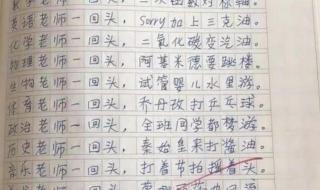 数学老师一回头，二次函数对称轴。
英语老师一回头，sorry加上三克油。
化学老师一回头，二氧化碳变汽油。
物理老师一回头，阿基米德要跳楼。
生物老师一回头，试管婴儿水里游。
体育老师一回头，乔丹改打乒乓球。
政治老师一回头，全班同学都梦游。
历史老师一回头，秦始皇来打酱油。
音乐老师一回头，打着节拍摇着头。
老师一回头，